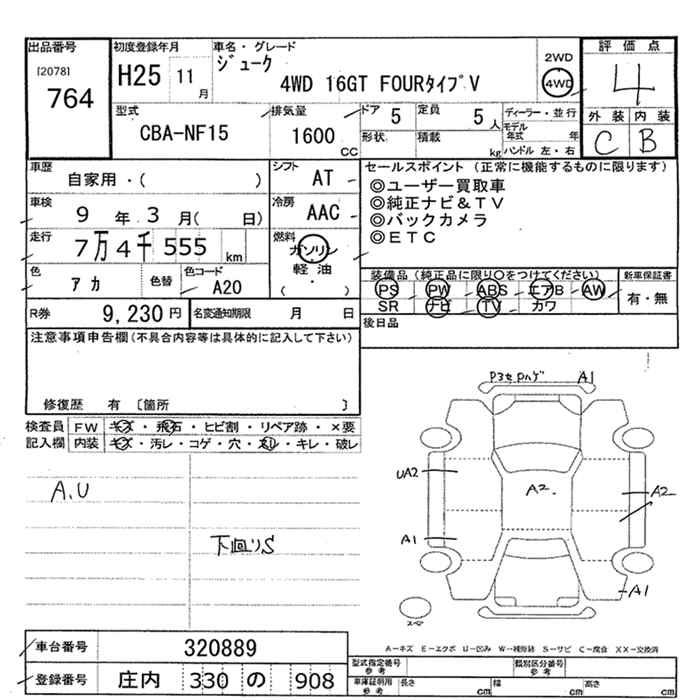 出品番号 初度登録年月 車名・グレード 2WD 評価点
[2078] H25 11月 ジューク 4WD 4
764 4WD 16GT FOURタイプV
型式 排気量 ドア 5 定員 5人 ディーラー・並行 外装 内装
CBA-NF15 1600CC 形状 積載 kg モデル年式 年 C B
ハンドル 左・右
車歴 自家用・( ) シフト AT セールスポイント (正常に機能するものに限ります)
◎ユーザー買取車
車検 9年3月( 日) 冷房 AAC ◎純正ナビ&TV
◎バックカメラ
走行 7万4千555km 燃料 ガソリン ◎ETC
軽油
( )
色 アカ 色替 色コード A20 装備品 (純正品に限り○をつけてください) 新車保証書
PS PW ABS エアB AW 有・無
R券 9,230円 名変通知期限 月 日 SR ナビ TV カワ
後日品
注意事項申告欄(不具合内容等は具体的に記入して下さい)
修復歴 有 〔箇所 〕
検査員 FW キズ・飛石・ヒビ割・リペア跡・×要
記入欄 内装 キズ・汚レ・コゲ・穴・スレ・キレ・破レ
P3セロハゲ A1
UA2 A2 A2
A.U
A1
下回りS
A1
スペア
A−キズ E−エクボ U−凹み W−補修跡 S−サビ C−腐食 XX−交換済
車台番号 320889
型式指定番号 参考 類別区分番号 参考
登録番号 庄内 330 の 908
車庫証明用 参考 長さ cm 幅 cm 高さ cm